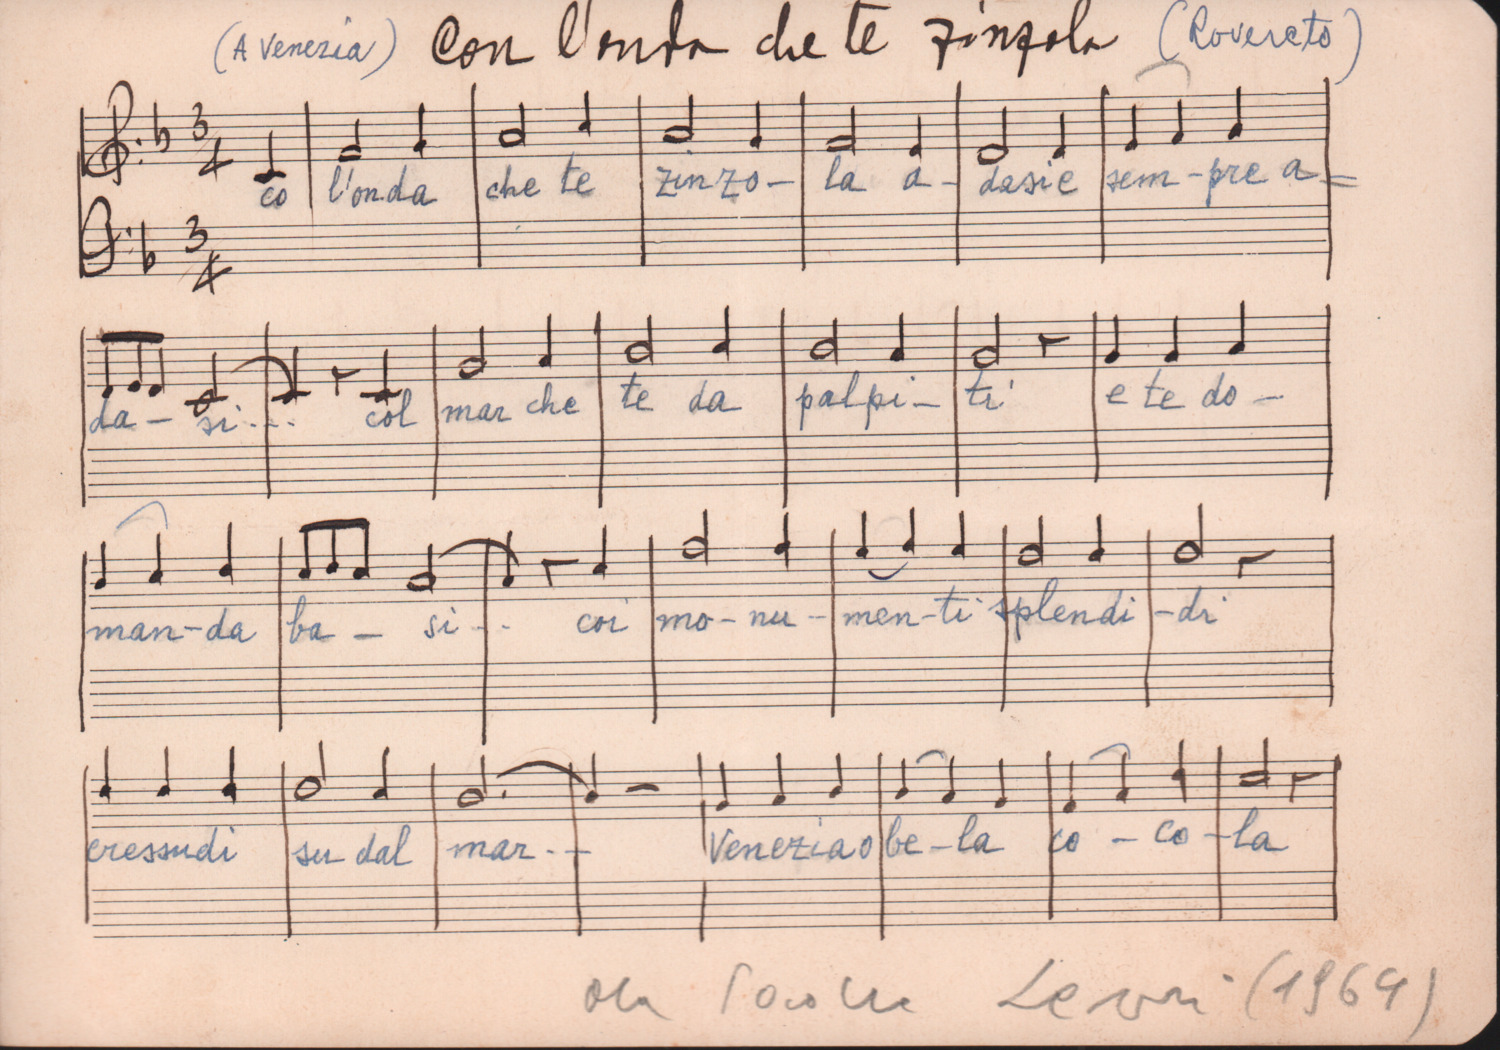 (A Venezia) Con l'onda che te zinzola (Rovereto)
3/4 co l'onda che te zinzo- la a- dasie sem-pre a=
3/4
da- si... col mar che te da palpi- ti e te do-
man-da ba- si.. coi mo-nu-men-ti splendi-di
cressudi su dal mar.-- Venezia o be-la co-co-la
(1964)